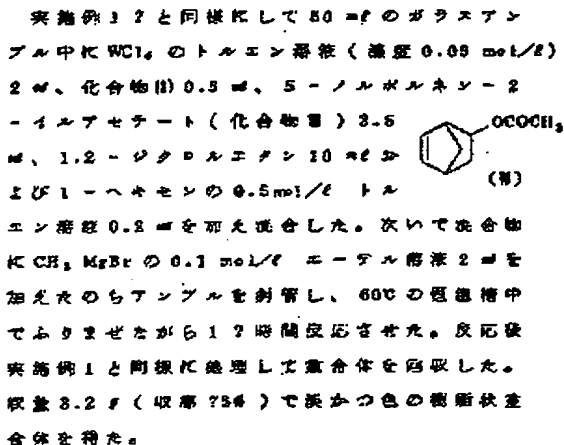 実施例17と同様にして50mlのガラスアン
プル中にWCl6のトルエン溶液(濃度0.05 mol/l)
2ml、化合物(I)0.5ml、5-ノルボルネン-2
-イルアセテート(化合物Ⅲ)3.5
OCOCH3
ml、1.2-ジクロルエタン10mlお
よび1-ヘキセンの0.5mol/l トル
エン溶液0.2mlを加え混合した。次いで混合物
にCH3MgBrの0.1 mol/l エーテル溶液2mlを
加えたのちアンプルを封管し、60℃の恒温槽中
でふりまぜながら17時間反応させた。反応後
実施例1と同様に処理して重合体を回収した。
収量3.2g(収率75%)で淡かつ色の樹脂状重
合体を得た。